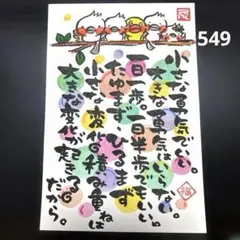 549
小さな勇気でいい。
大きな勇気はいらない。
一日一歩。一日半歩でいい。
たゆまず、ひるまず
小さな変化の積み重ねは
大きな変化が起きる
だから。
福